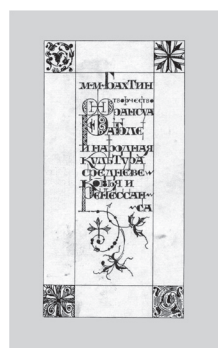 М·М·БАХТИН
ТВОРЧЕСТВО
ФРАНСУА
РАБЛЕ
И НАРОДНАЯ
КУЛЬТУРА
СРЕДНЕВЕ
КОВЬЯ И
РЕНЕССАН
СА